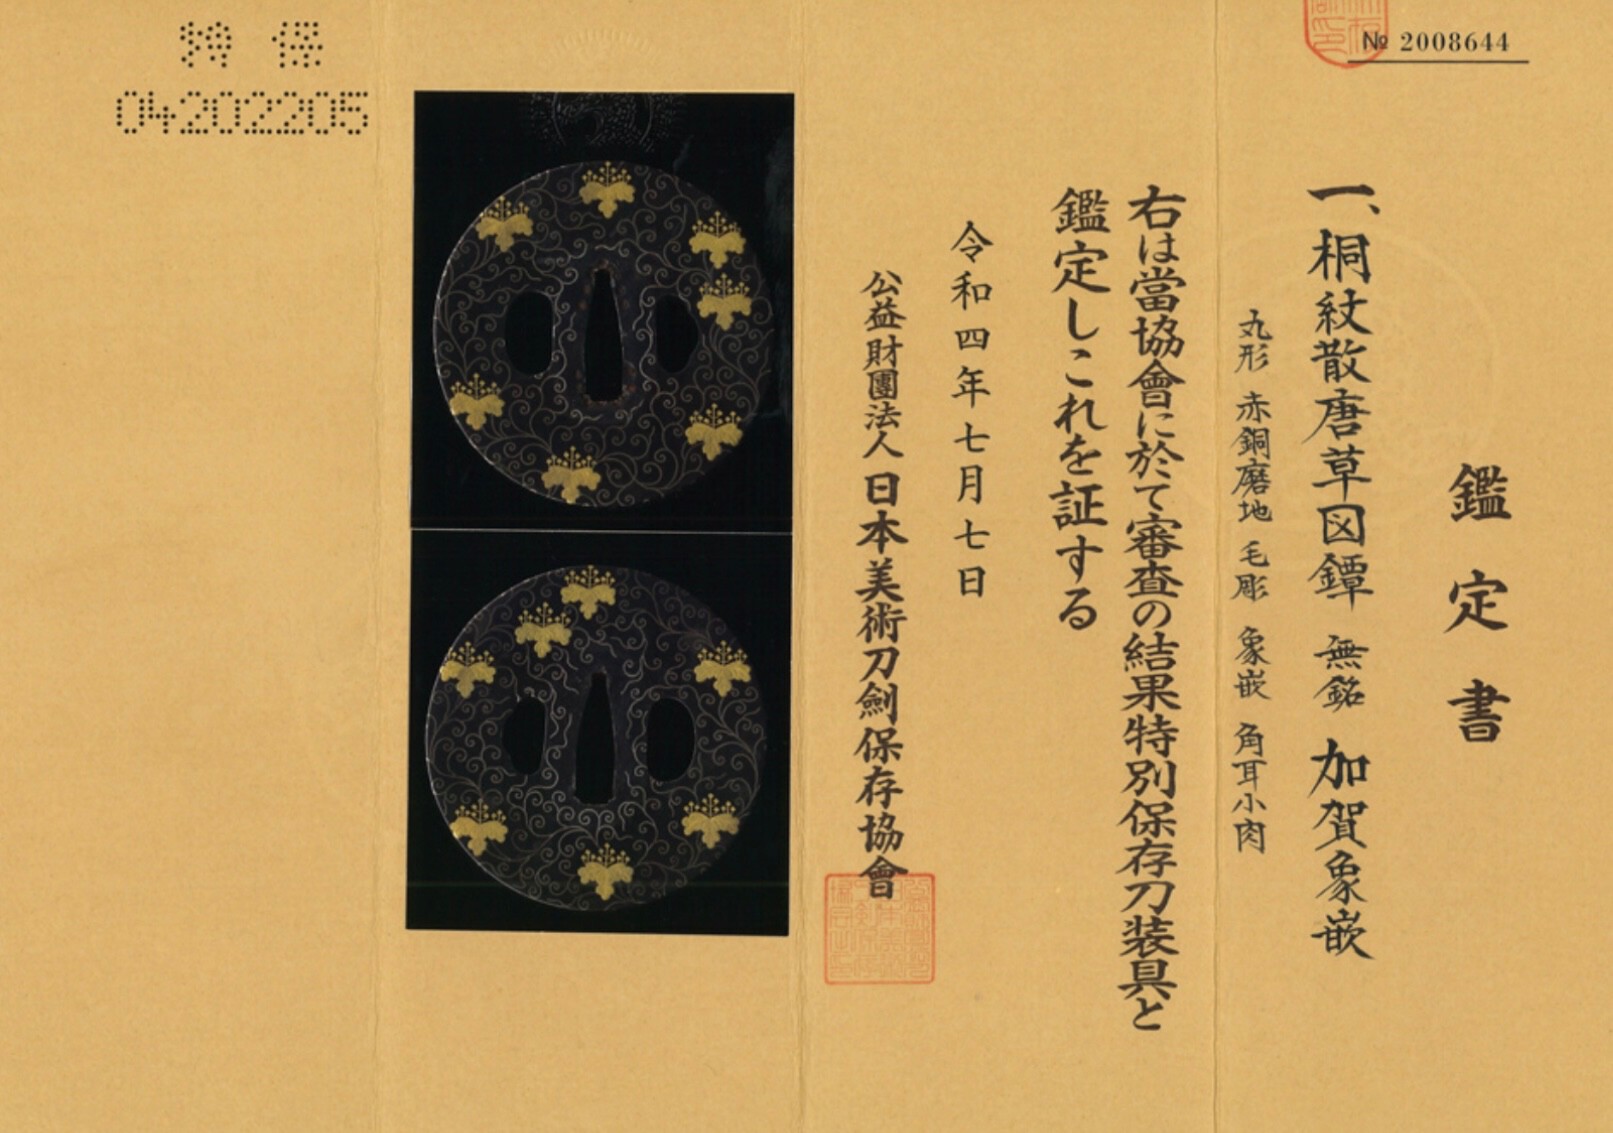 № 2008644
鑑定書
一、桐紋散唐草図鐔 無銘 加賀象嵌
丸形 赤銅磨地 毛彫 象嵌 角耳小肉
右は當協會に於て審査の結果特別保存刀装具と
鑑定しこれを証する
令和四年七月七日
公益財團法人 日本美術刀劍保存協會
特保
04202205